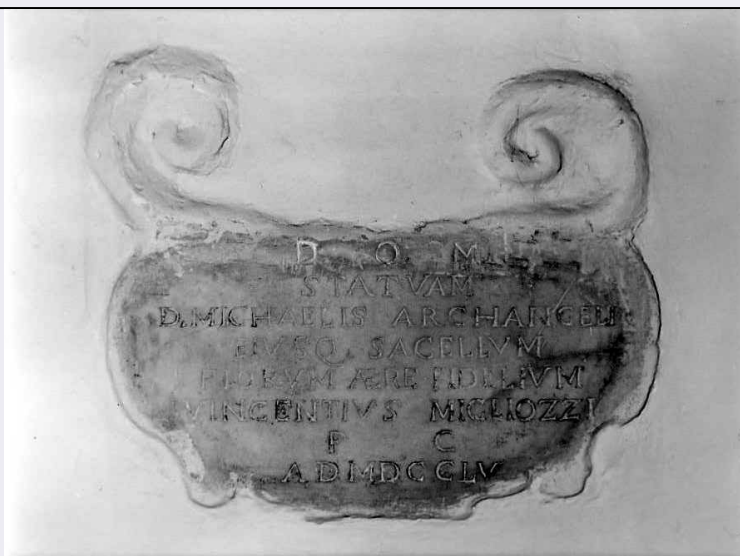 D. O. M.
STATVAM
D. MICHAELIS ARCHANGELI
EIVSQ. SACELLVM
PIORVM ÆRE FIDELIVM
VINCENTIVS MIGLIOZZI
P C
A D MDCCLV